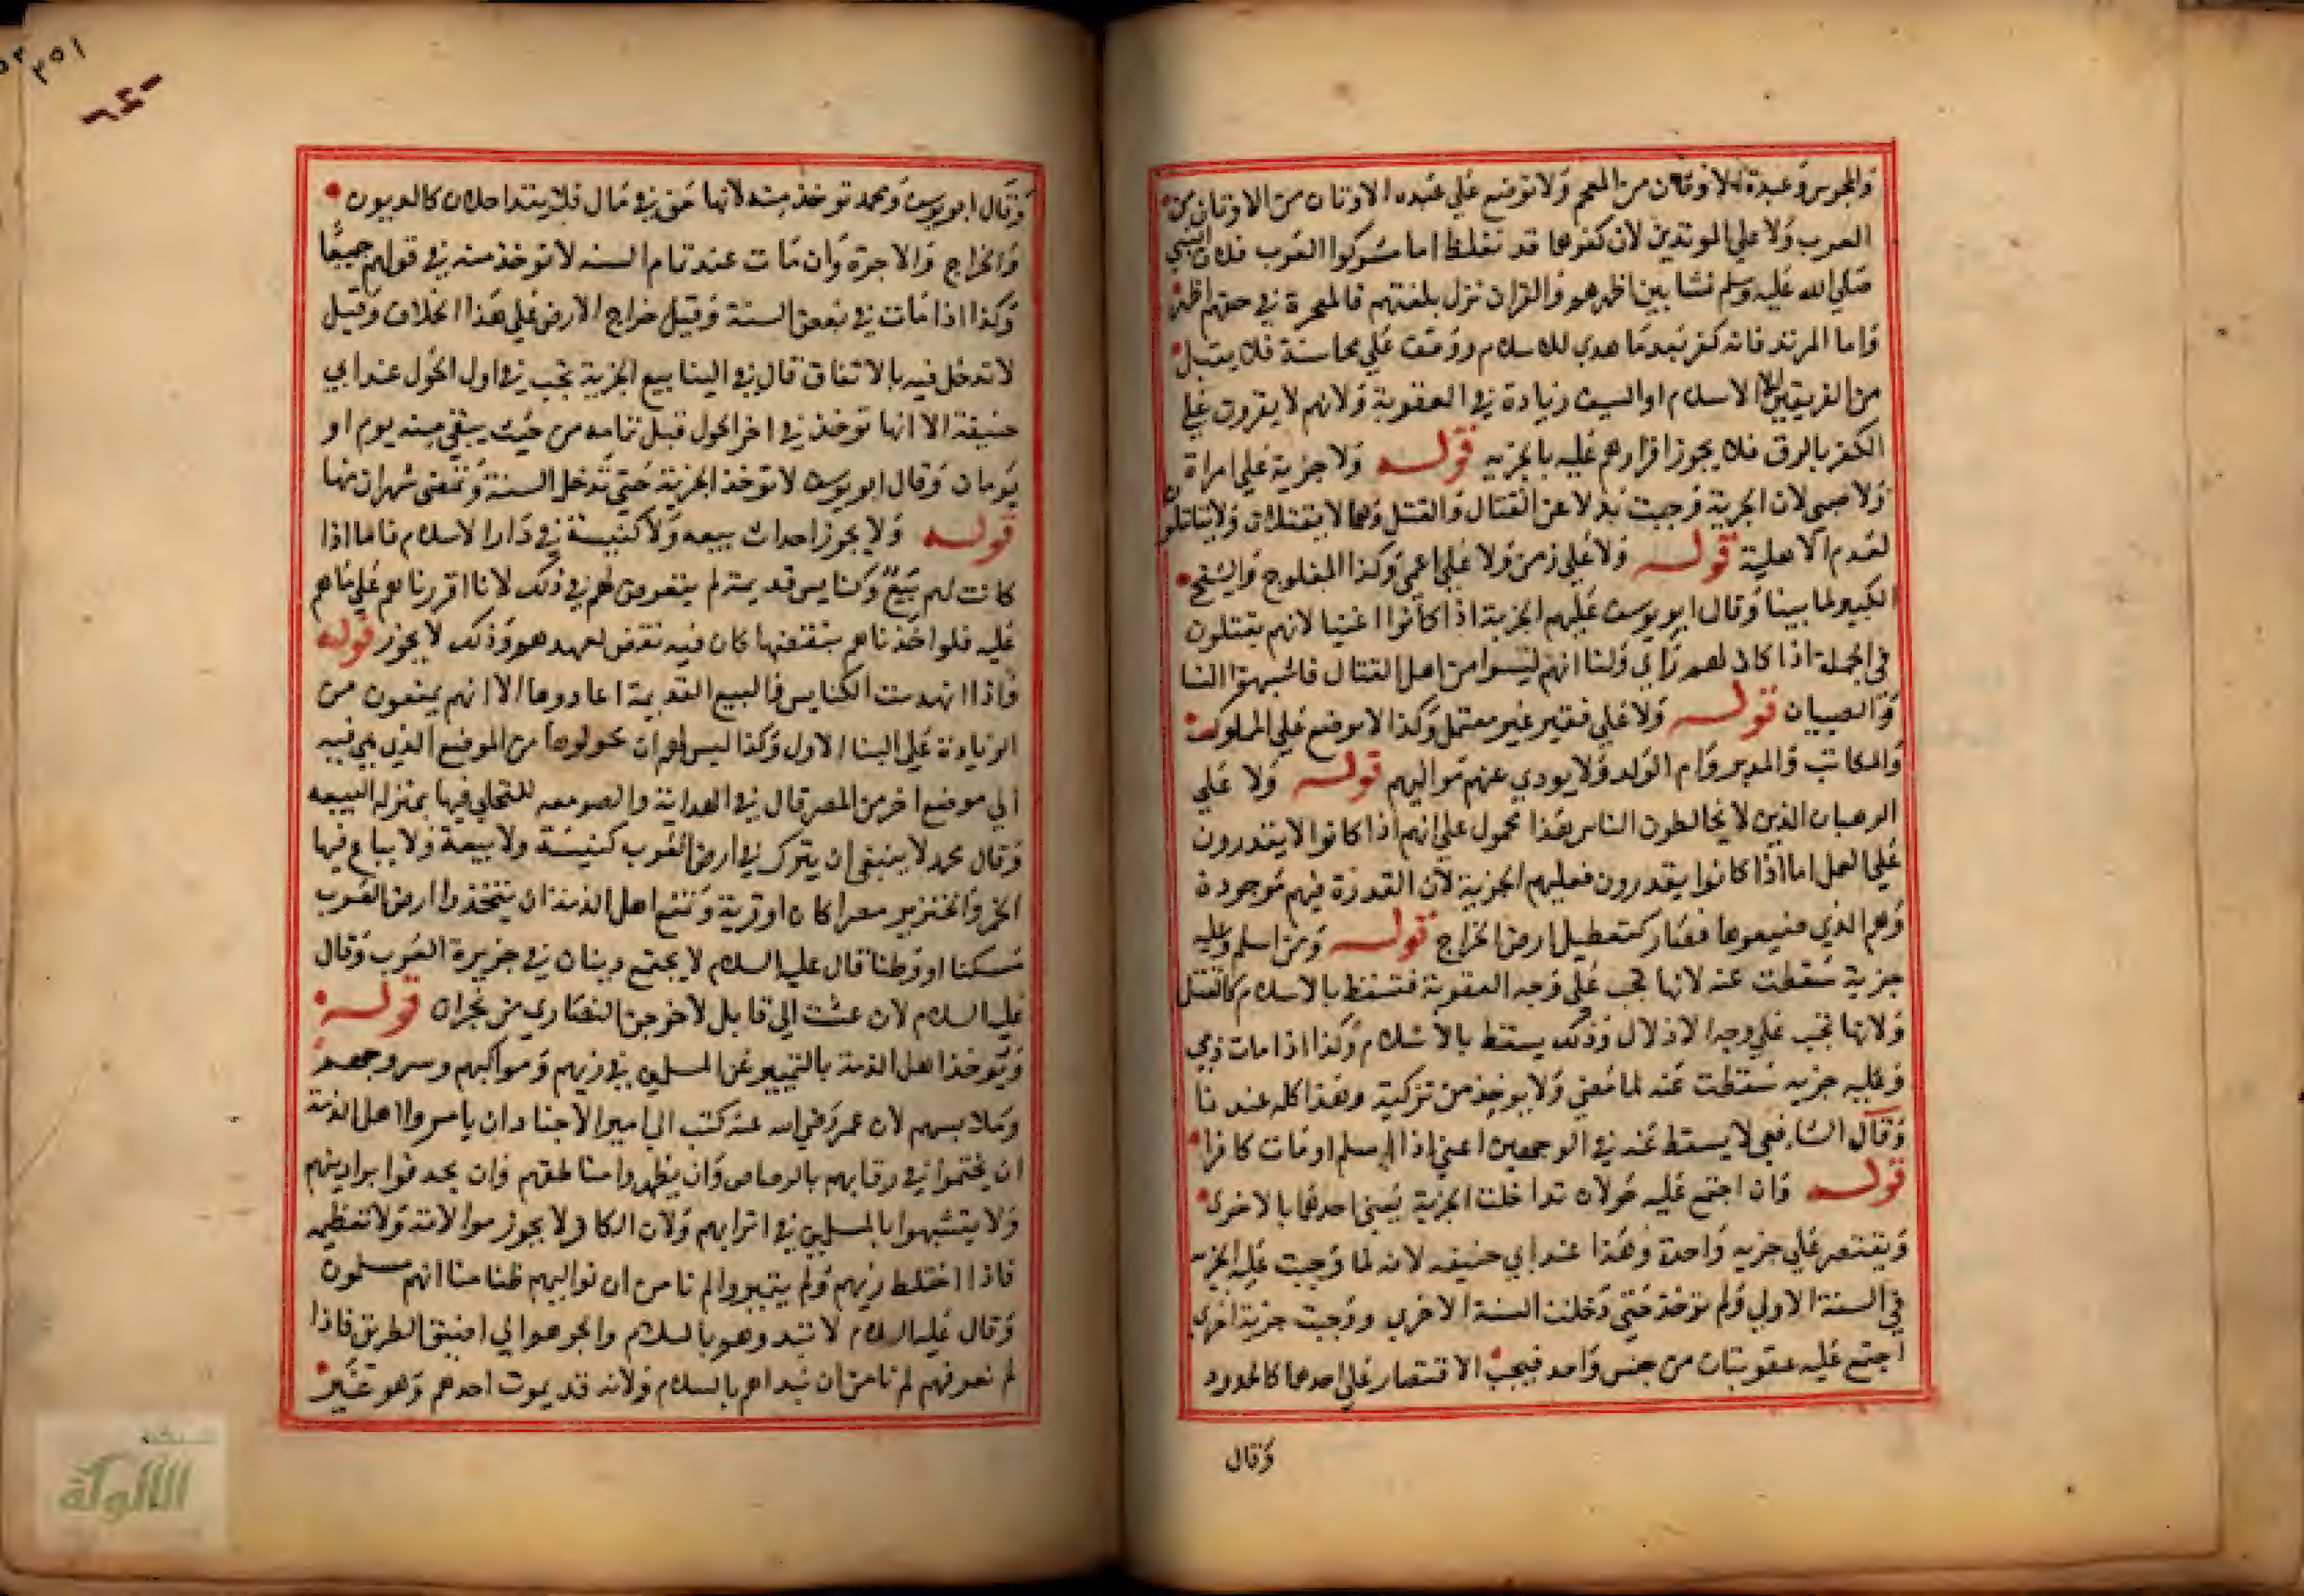 والمجوس وعبدة الاوثان من العجم ولا توضع علي عبده الاوثان من الاوثان من
العرب ولا علي المرتدين لان كفرهما قد تغلظ اما مشركوا العرب فلان النبي
صلي الله عليه وسلم نشا بين اظهرهم والقران نزل بلغتهم فالمعجزة في حقهم اظهر
واما المرتد فانه كفر بعدما هدي للاسلام ووقف علي محاسنه فلا يقبل
من الفريقين الا الاسلام او السيف زيادة في العقوبة ولانهم لا يقرون علي
الكفر بالرق فلا يجوز اقرارهم عليه بالجزيه قوله ولا جزية علي امراة
ولا صبي لان الجزية وجبت بدلا عن القتال والقتل وهما لا يقتلان ولا يقاتلان
لعدم الاهلية قوله ولا علي زمن ولا علي اعمي وكذا المفلوج والشيخ
الكبير لما بينا وقال ابو يوسف عليهم الجزية اذا كانوا اغنيا لانهم يقتلون
في الجملة اذا كان لهم راي ولنا انهم ليسوا من اهل القتال فاشبهوا النسا
والصبيان قوله ولا علي فقير غير معتمل وكذا لا توضع علي المملوك
والمكاتب والمدبر وام الولد ولا يودي عنهم مواليهم قوله ولا علي
الرهبان الذين لا يخالطون الناس هذا محمول علي انهم اذا كانوا لا يقدرون
علي العمل اما اذا كانوا يقدرون فعليهم الجزية لان القدرة فيهم موجودة
وهم الذي ضيعوها فصار كتعطيل ارض الخراج قوله ومن اسلم وعليه
جزية سقطت عنه لانها تجب علي وجه العقوبة فتسقط بالاسلام كالقتل
ولانها تجب علي وجه الاذلال وذلك يسقط بالاسلام وكذا اذا مات ذمي
وعليه جزيه سقطت عنه لما مضي ولا يوخذ من تركته وهذا كله عندنا
وقال الشافعي لا يسقط عنه في الوجهين اعني اذا اسلم او مات كافرا
قوله وان اجتمع عليه حولان تداخلت الجزية يعني احدهما بالاخري
ويقتصر علي جزيه واحدة وهذا عند ابي حنيفه لانه لما وجبت عليه الجزيه
في السنة الاولي ولم توخذ حتي دخلت السنة الاخري ووجبت جزية اخري
اجتمع عليه عقوبتان من جنس واحد فيجب الاقتصار علي احدهما كالحدود
وقال
٣٥١
وقال ابو يوسف ومحمد توخذ منه لانها حق في مال فلا يتداخلان كالديون
والخراج والاجرة وان مات عند تمام السنه لا توخذ منه في قولهم جميعا
وكذا اذا مات في بعض السنة وقيل خراج الارض علي هذا الخلاف وقيل
لا تدخل فيه بالاتفاق قال في الينابيع الجزية تجب في اول الحول عند ابي
حنيفة الا انها توخذ في اخر الحول قبل تمامه من حيث يبقي منه يوم او
يومان وقال ابو يوسف لا توخذ الجزية حتي تدخل السنة وتمضي شهران منها
قوله ولا يجوز احداث بيعه ولا كنيسة في دار الاسلام فاما اذا
كانت لهم بيع وكنايس قديمة لم يتعرض لهم في ذلك لانا اقررناهم علي ماهم
عليه فلو اخذناهم بنقضها كان فيه نقض لعهدهم وذلك لا يجوز قوله
واذا انهدمت الكنايس والبيع القديمة اعادوها الا انهم يمنعون من
الزيادة علي البنا الاول وكذا ليس لهم ان يحولوها من الموضع الذي هي فيه
الي موضع اخر من المصر قال في الهداية والصومعه للتخلي فيها بمنزله البيعه
وقال محمد لا ينبغي ان يترك في ارض العرب كنيسة ولا بيعة ولا يباع فيها
الخمر والخنزير مصرا كان او قرية وتمنع اهل الذمة ان يتخذوا ارض العرب
مسكنا او وطنا قال عليه السلام لا يجتمع دينان في جزيرة العرب وقال
عليه السلام لان عشت الي قابل لاخرجن النصاري من نجران قوله
ويوخذ اهل الذمة بالتمييز عن المسلمين في زيهم ومواكبهم وسروجهم
وملابسهم لان عمر رضي الله عنه كتب الي امير الاجناد ان يامروا اهل الذمة
ان يختموا في رقابهم بالرصاص وان يظهروا مناطقهم وان يحذفوا براذينهم
ولا يتشبهوا بالمسلمين في اثوابهم ولان الكافر لا يجوز موالاته ولا تعظيمه
فاذا اختلط زيهم ولم يتميزوا لم نامن ان نواليهم ظنا منا انهم مسلمون
وقال عليه السلام لا تبدوهم بالسلام والجوهم الي اضيق الطريق فاذا
لم نعرفهم لم نامن ان نبداهم بالسلام ولانه قد يموت احدهم وهو غير
شبكة
الألوكة